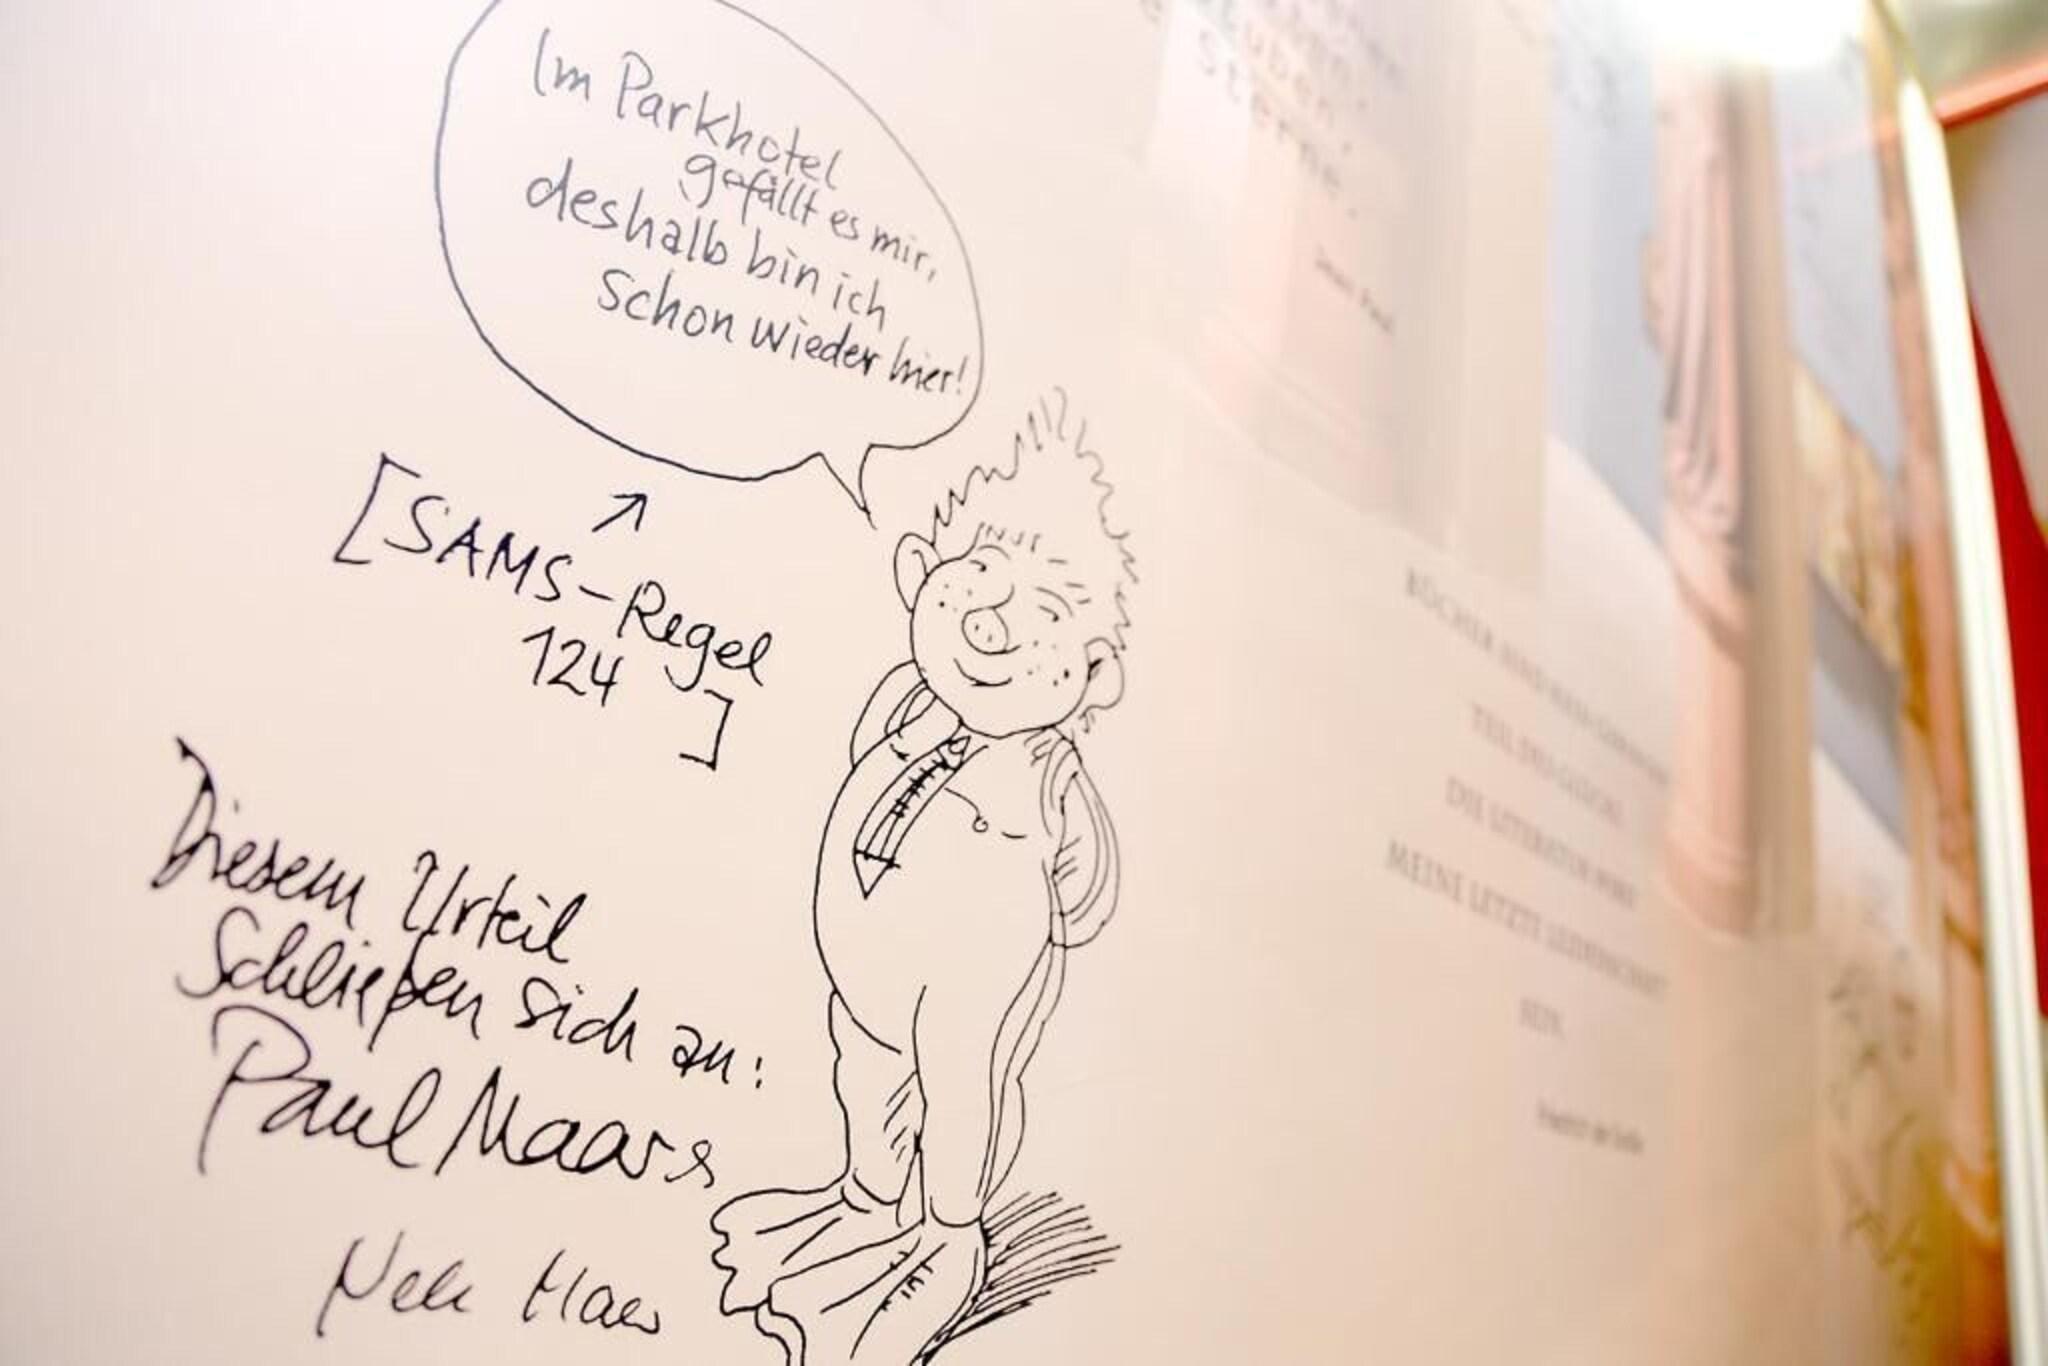 Im Parkhotel
gefällt es mir,
deshalb bin ich
schon wieder hier!
[SAMS-Regel
124
]
Diesem Urteil
schließen sich an:
Paul Maar &
Nele Maar
Sterne.
Jean Paul
BÜCHER SIND
TEIL DES GLÜCKS
DIE LITERATUR WIRD
MEINE LETZTE LEIDENSCHAFT
SEIN.